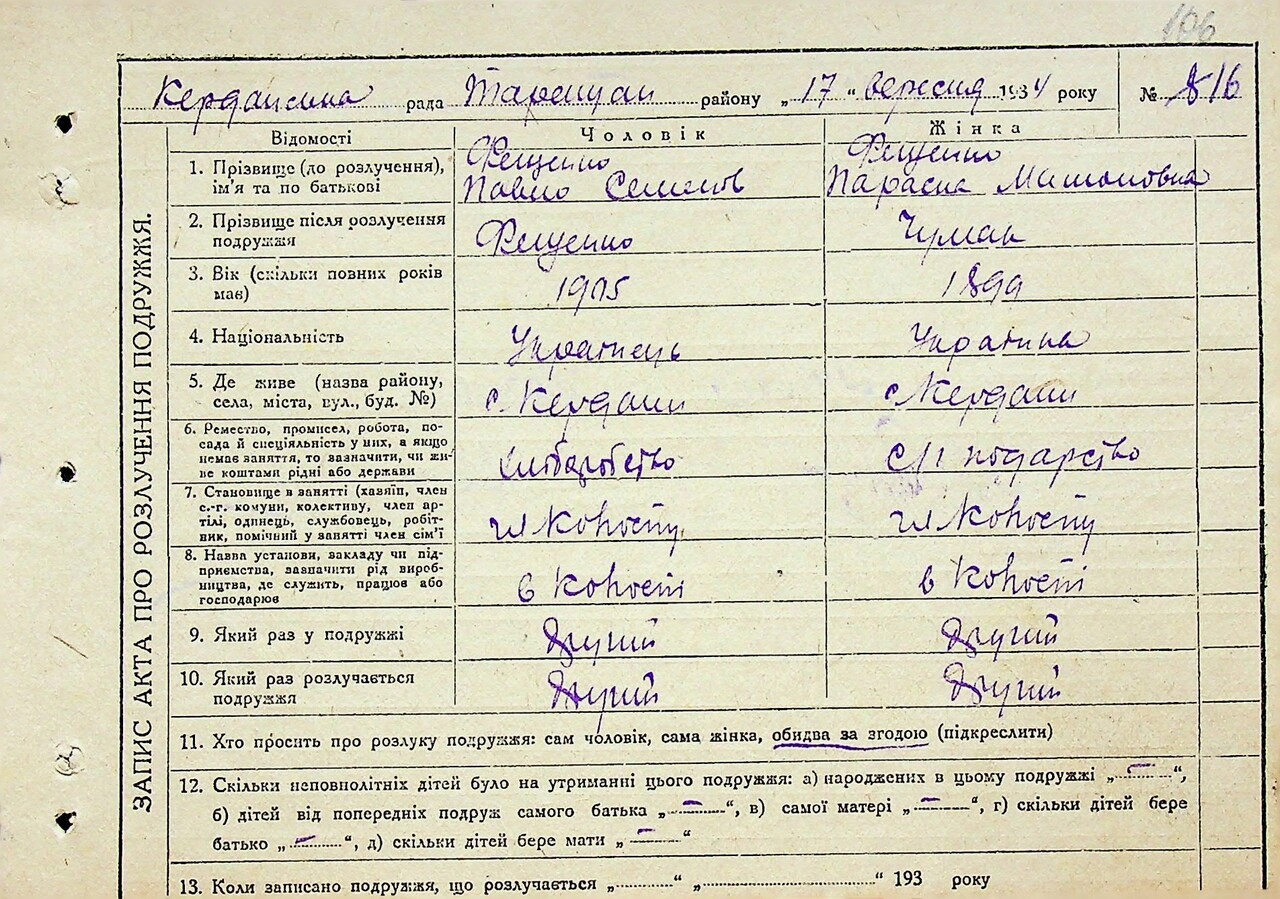 106
Кердансина рада Таращан району „17“ вересня 1934 року № 816
Відомості Чоловік Жінка
1. Прізвище (до розлучення), ім'я та по батькові Фещенко Фещенко
Павло Семенов Параска Митоновна
2. Прізвище після розлучення подружжя Фещенко Чумак
3. Вік (скільки повних років має) 1905 1899
4. Національність Українець Українка
5. Де живе (назва району, села, міста, вул., буд. №) с Кердани с Кердани
6. Ремество, промисел, робота, посада й спеціяльність у них, а якщо немає заняття, то зазначити, чи живе коштами рідні або держави хліборобство с/г подарство
7. Становище в занятті (хазяїн, член с.-г. комуни, колективу, член артілі, одинець, службовець, робітник, помічний у занятті член сім'ї чл Коһоспу чл Коһоспу
8. Назва установи, закладу чи підприємства, зазначити рід виробництва, де служить, працює або господарює в Коһоспі в Коһоспі
9. Який раз у подружжі другий другий
10. Який раз розлучається подружжя другий другий
11. Хто просить про розлуку подружжя: сам чоловік, сама жінка, обидва за згодою (підкреслити)
12. Скільки неповнолітніх дітей було на утриманні цього подружжя: а) народжених в цьому подружжі „—“,
б) дітей від попередніх подруж самого батька „—“, в) самої матері „—“, г) скільки дітей бере
батько „—“, д) скільки дітей бере мати „—“
13. Коли записано подружжя, що розлучається „........“ „....................“ 193 року
ЗАПИС АКТА ПРО РОЗЛУЧЕННЯ ПОДРУЖЖЯ.